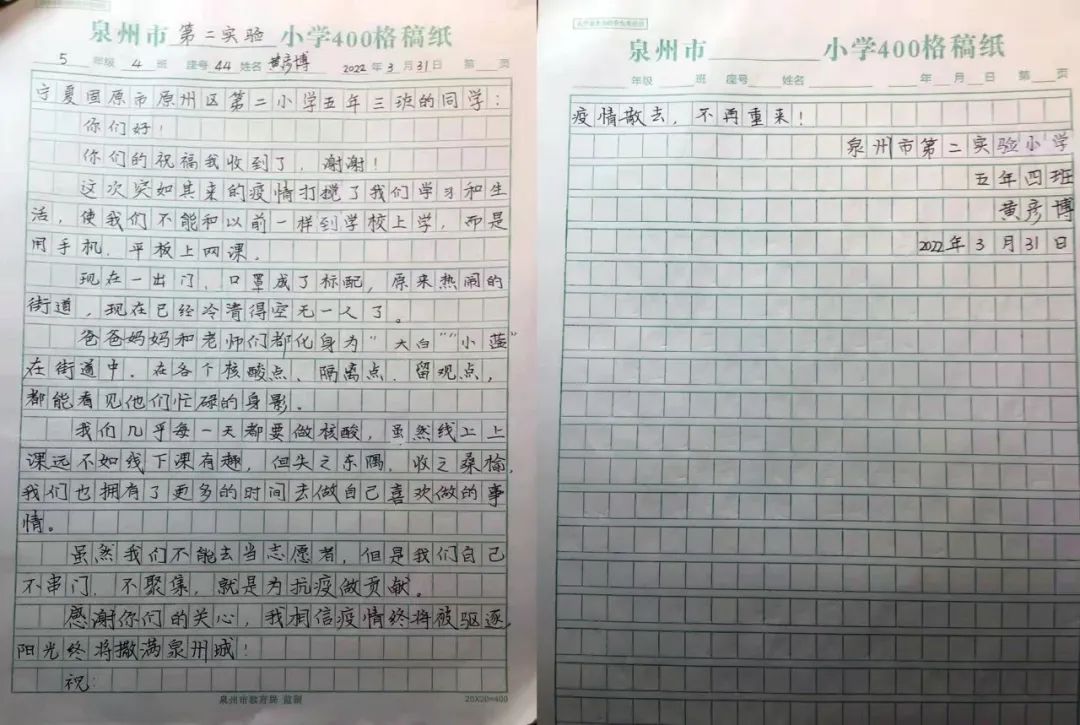 泉州市 第二实验 小学400格稿纸
5 年级 4 班 座号 44 姓名 黄彦博 2022 年 3 月 31 日 第 页
宁夏固原市原州区第二小学五年三班的同学：
你们好！
你们的祝福我收到了，谢谢！
这次突如其来的疫情打搅了我们学习和生
活，使我们不能和以前一样到学校上学，而是
用手机、平板上网课。
现在一出门，口罩成了标配，原来热闹的
街道，现在已经冷清得空无一人了。
爸爸妈妈和老师们都化身为“大白”“小蓝”
在街道中，在各个核酸点、隔离点、留观点，
都能看见他们忙碌的身影。
我们几乎每一天都要做核酸，虽然线上上
课远不如线下课有趣，但失之东隅，收之桑榆，
我们也拥有了更多的时间去做自己喜欢做的事
情。
虽然我们不能去当志愿者，但是我们自己
不串门，不聚集，就是为抗疫做贡献。
感谢你们的关心，我相信疫情终将被驱逐，
阳光终将撒满泉州城！
祝：
泉州市教育局 监制 20X20=400
泉州市 小学400格稿纸
年级 班 座号 姓名 年 月 日 第 页
疫情散去，不再重来！
泉州市第二实验小学
五年四班
黄彦博
2022年3月31日